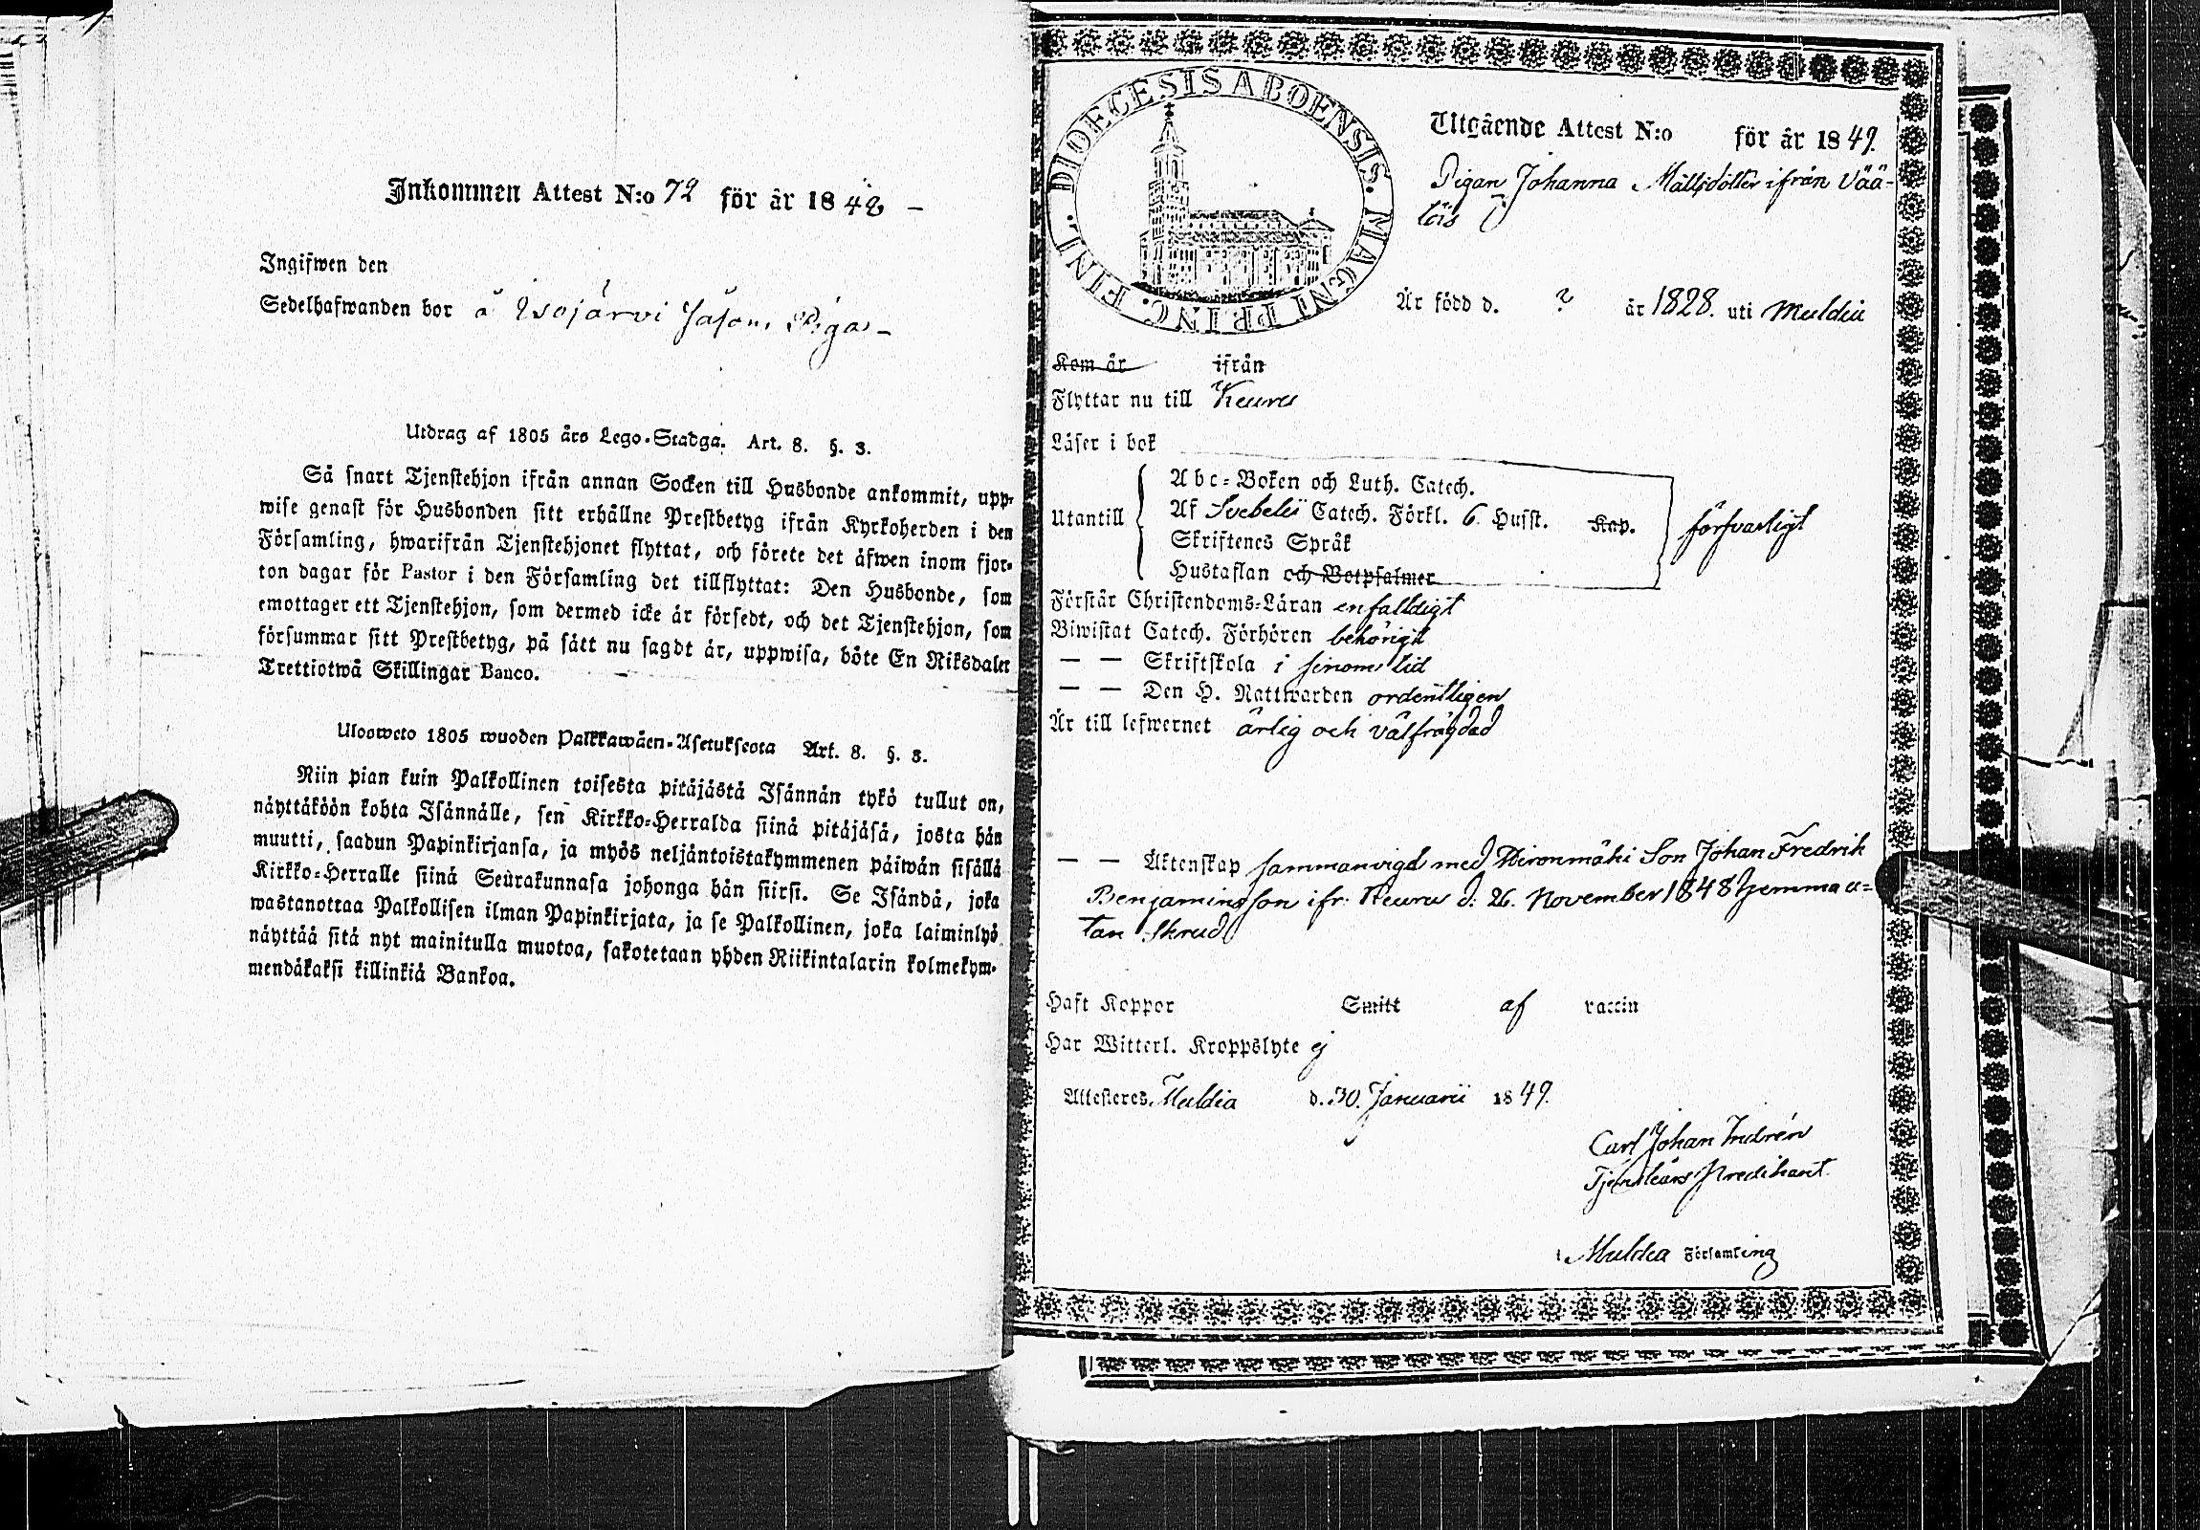 Inkommen Attest N:o 72 för år 1848 –
Ingifwen den
Sedelhafwanden bor å Isojärvi såsom Piga –
Utdrag af 1805 års Lego-Stadga. Art. 8. §. 3.
Så snart Tjenstehjon ifrån annan Socken till Husbonde ankommit, upp-
wise genast för Husbonden sitt erhållne Prestbetyg ifrån Kyrkoherden i den
Församling, hwarifrån Tjenstehjonet flyttat, och förete det äfwen inom fjor-
ton dagar för Pastor i den Församling det tillflyttat: Den Husbonde, som
emottager ett Tjenstehjon, som dermed icke är försedt, och det Tjenstehjon, som
försummar sitt Prestbetyg, på sätt nu sagdt är, uppwisa, böte En Riksdaler
Trettiotwå Skillingar Banco.
Ulosweto 1805 wuoden Palkkawäen-Asetuksesta Art. 8. §. 3.
Niin pian kuin Palkollinen toisesta pitäjästä Isännän tykö tullut on,
näyttäköön kohta Isännälle, sen Kirkko-Herralda siinä pitäjäsä, josta hän
muutti, saadun Papinkirjansa, ja myös neljäntoistakymmenen päiwän sisällä
Kirkko-Herralle siinä Seurakunnasa johonga hän siirsi. Se Isändä, joka
wastanottaa Palkollisen ilman Papinkirjata, ja se Palkollinen, joka laiminlyö
näyttää sitä nyt mainitulla muotoa, sakotetaan yhden Riikintalarin kolmekym-
mendäkaksi killinkiä Bankoa.
FINL. DIOECESIS ABOENSIS. MAGNI PRINC.
Utgående Attest N:o för år 1849.
Pigan Johanna Mattsdotter ifrån Vää-
töis
Är född d. ? år 1828. uti Muldia
Kom år ifrån
Flyttar nu till Keuru
Läser i bok
Abc-Boken och Luth. Catech.
Utantill Af Svebelii Catech. Förkl. 6 Husst. Kap. försvarligt
Skriftenes Språk
Hustaflan och Botpsalmer
Förstår Christendoms-Läran enfalldigt
Biwistat Catech. Förhören behörigt
— — Skriftskola i sinom tid
— — Den H. Nattwarden ordentligen
Är till lefwernet ärlig och välfrägdad
— — Äktenskap sammanvigd med Hironmäki Son Johan Fredrik
Benjaminsson ifr: Keuru d: 26. November 1848 hemma u=
tan Skrud
Haft Koppor Smitt af vaccin
Har Witterl. Kroppslyte ej
Attesteres. Muldia d. 30. Januarii 1849.
Carl Johan Indrén
Tjensteårs Predikant.
i Muldia Församling